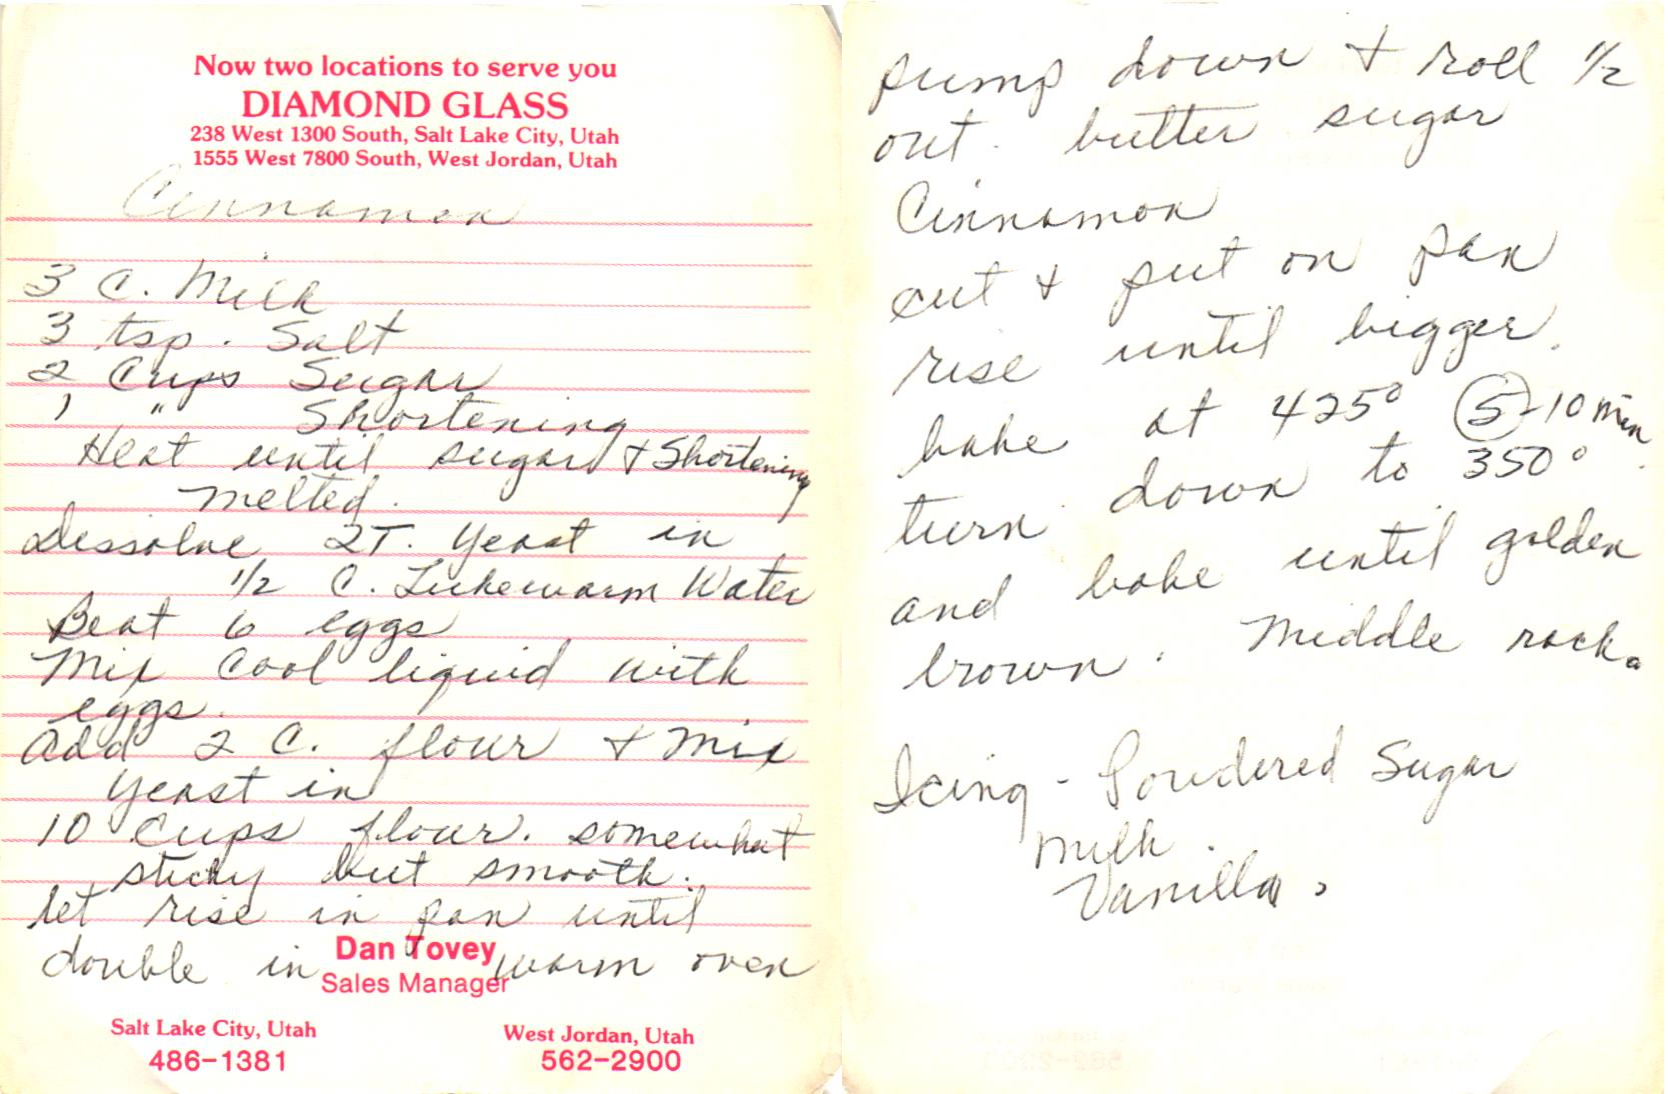 Now two locations to serve you
DIAMOND GLASS
238 West 1300 South, Salt Lake City, Utah
1555 West 7800 South, West Jordan, Utah
Cinnamon
3 C. Milk
3 tsp. Salt
2 Cups Sugar
1 " Shortening
Heat until sugar & Shortening
melted.
Dissolve 2T. Yeast in
1/2 C. Lukewarm Water
Beat 6 eggs
Mix cool liquid with
eggs.
Add 2 C. flour & mix
yeast in
10 Cups flour. somewhat
sticky but smooth.
let rise in pan until
double in warm oven
Dan Tovey
Sales Manager
Salt Lake City, Utah
486-1381
West Jordan, Utah
562-2900
pump down & roll 1/2
out. butter sugar
Cinnamon
cut & put on pan
rise until bigger.
bake at 425° 5-10 min
turn down to 350°.
and bake until golden
brown. Middle rack.
Icing - Powdered Sugar
milk.
Vanilla.